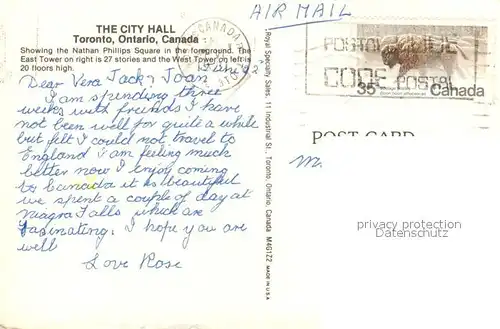 THE CITY HALL
Toronto, Ontario, Canada
Showing the Nathan Phillips Square in the foreground. The
East Tower on right is 27 stories and the West Tower on left is
20 floors high.
Dear Vera Jack & Joan
I am spending three
weeks with friends I have
not been well for quite a while
but felt I could not travel to
England I am feeling much
better now I enjoy coming
to Canada it is beautiful
we spent a couple of day at
Niagra Falls which are
fasinating. I hope you are
well
Love Rose
CANADA
Royal Specialty Sales, 11 Industrial St., Toronto, Ontario, Canada M4G1Z2 MADE IN U.S.A.
AIR MAIL
POSTAL CODE
CODE POSTAL
35
Canada
POST CARD
M.
privacy protection
datenschutz